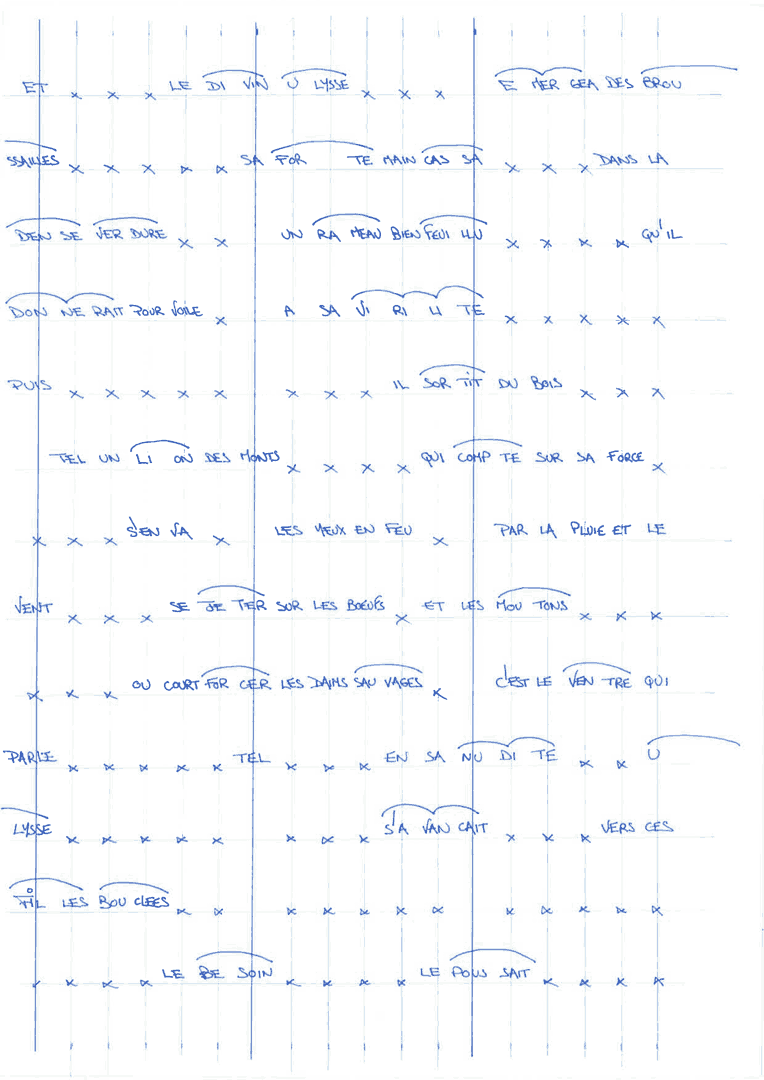 ET x x x LE DI VIN U LYSSE x x x E MER GEA DES BROU
SSAILLES x x x x x SA FOR TE MAIN CAS SA x x x DANS LA
DEN SE VER DURE x x UN RA MEAU BIEN FEUI LLU x x x x QU'IL
DON NE RAIT POUR VOILE x A SA VI RI LI TE x x x x x
PUIS x x x x x x x x IL SOR TIT DU BOIS x x x
TEL UN LI ON DES MONTS x x x x QUI COMP TE SUR SA FORCE x
x x x S'EN VA x LES YEUX EN FEU x PAR LA PLUIE ET LE
VENT x x x SE JE TER SUR LES BOEUFS x ET LES MOU TONS x x x
x x x OU COURT FOR CER LES DAIMS SAU VAGES x C'EST LE VEN TRE QUI
PARLE x x x x x TEL x x x EN SA NU DI TE x x U
LYSSE x x x x x x x x S'A VAN CAIT x x x VERS CES
FIL LES BOU CLEES x x x x x x x x x x x x
x x x x LE BE SOIN x x x x LE POUS SAIT x x x x